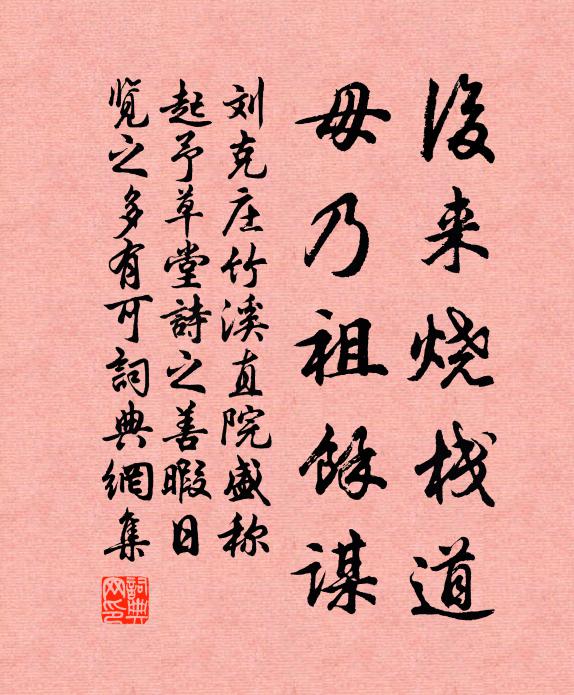 後来烧栈道
毋乃祖馀谋
刘克庄竹溪直院盛称
起予草堂詩之善暇日
览之多有可詞典網集
詞典网印